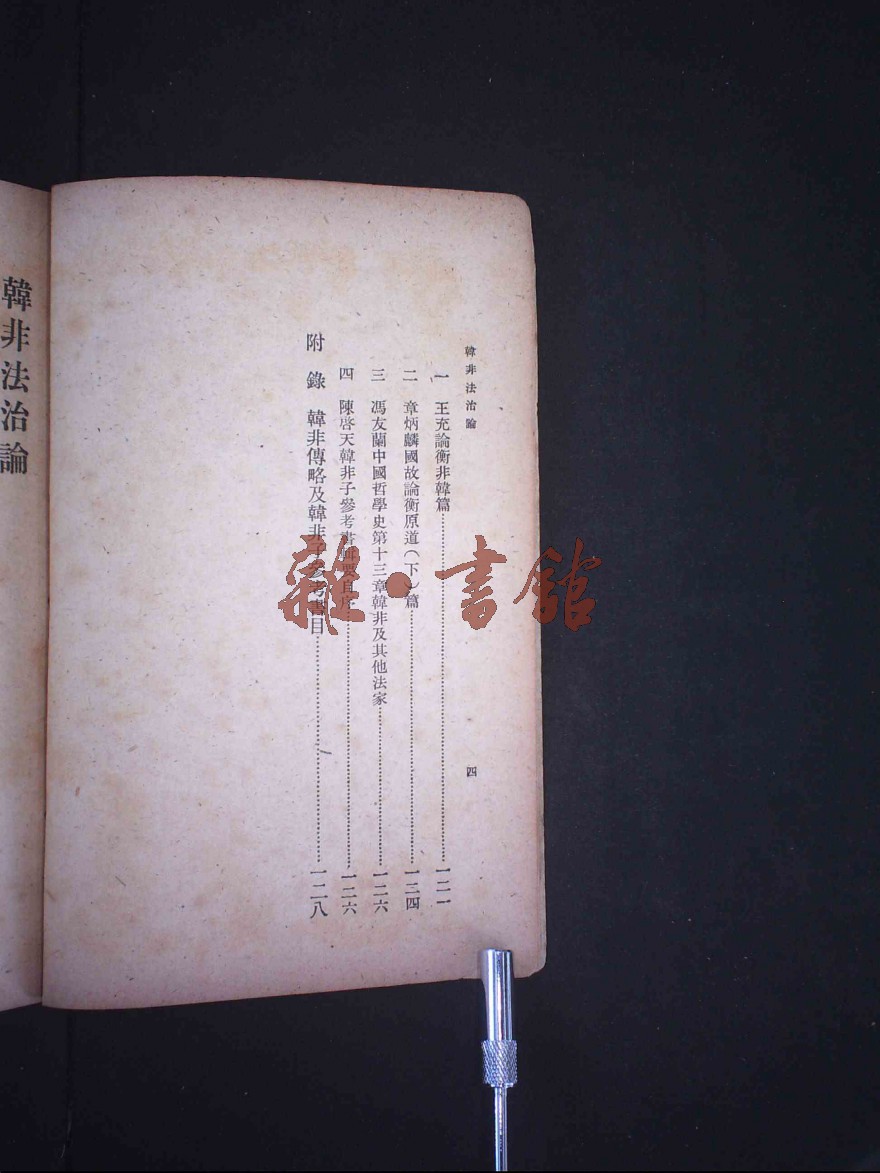 韓非法治論
四
一 王充論衡非韓篇……一二一
二 章炳麟國故論衡原道(下)篇……一二四
三 馮友蘭中國哲學史第十三章韓非及其他法家……一二六
四 陳啓天韓非子參考書輯要自序……一二六
附錄 韓非傳略及韓非子參考書目……一二八
韓非法治論
雜·書館